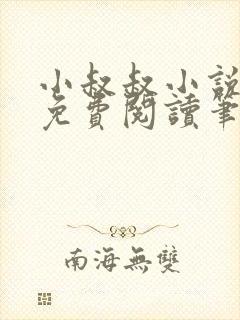 小叔叔小說
免費閱讀筆
南海無雙